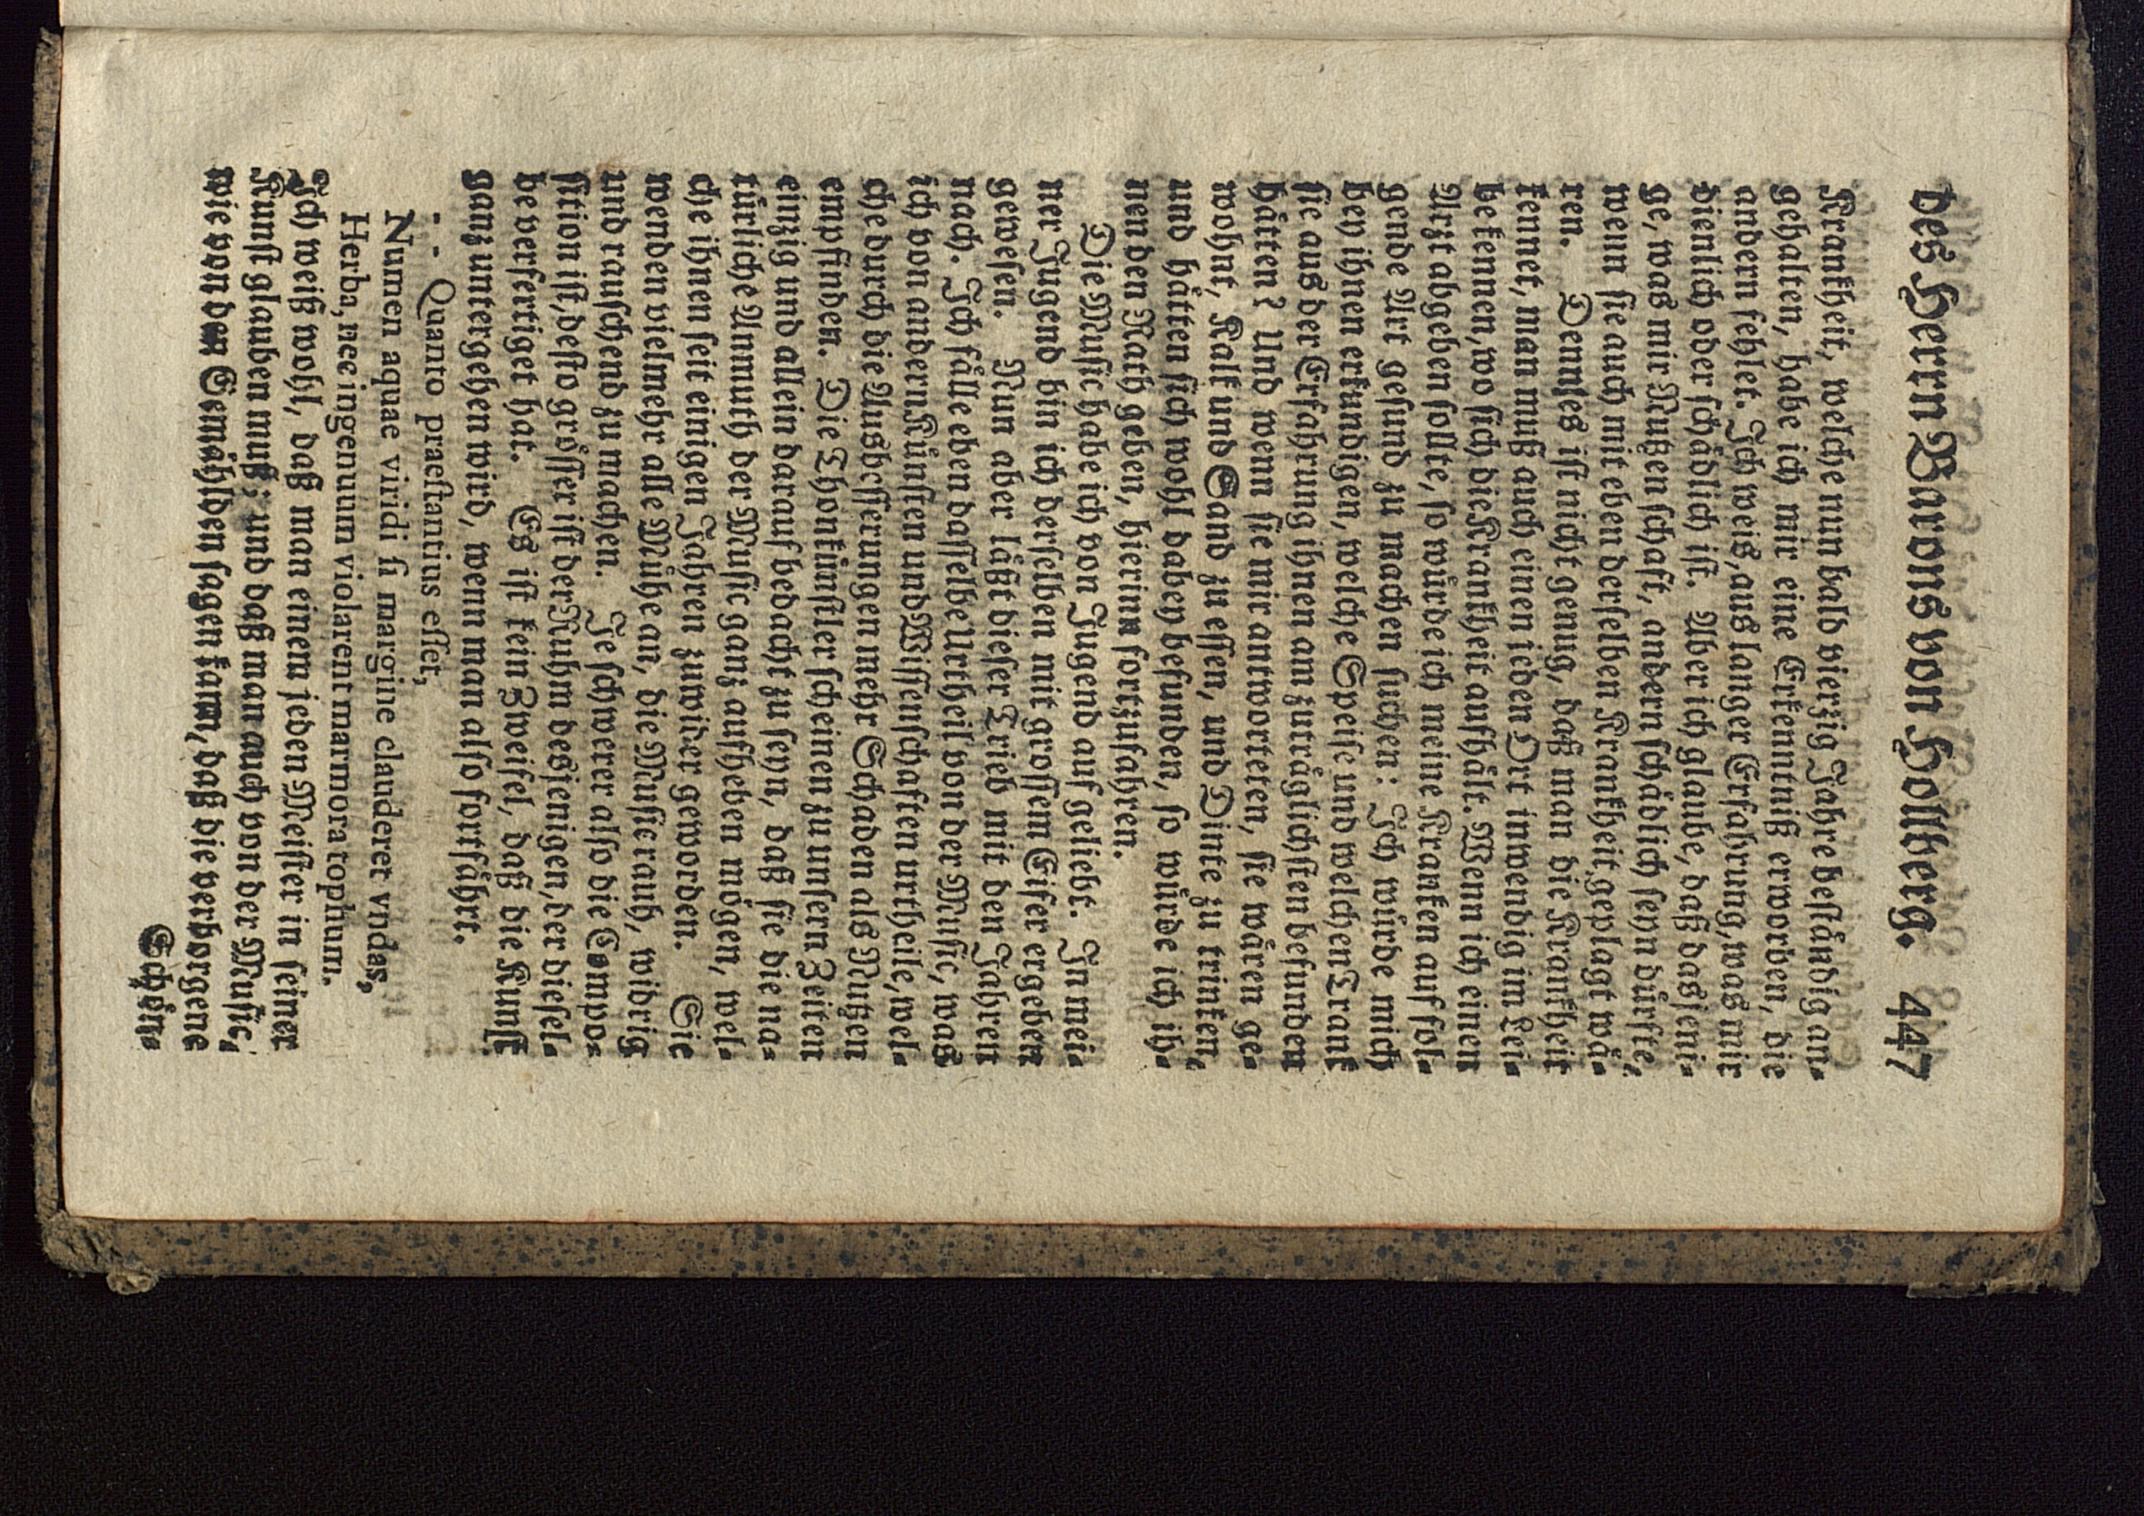 des Herrn Barons von Hollberg. 447
Krankheit, welche nun bald vierzig Jahre beståndig an-
gehalten, habe ich mir eine Erkenntniß erworben, die
andern fehlet. Ich weiß, aus langer Erfahrung, was mir
dienlich oder schådlich ist. Aber ich glaube, daß dasjeni-
ge, was mir Nutzen schaft, andern schådlich seyn důrfte,
wenn sie auch mit eben derselben Krankheit geplagt wå-
ren. Denn es ist nicht genug, daß man die Krankheit
kennet, man muß auch einen jeden Ort inwendig im Lei-
be kennen, wo sich die Krankheit aufhålt. Wenn ich einen
Arzt abgeben sollte, so wůrde ich meine Kranken auf fol-
gende Art gesund zu machen suchen: Ich wůrde mich
bey ihnen erkundigen, welche Speise und welchen Trank
sie aus der Erfahrung ihnen am zutråglichsten befunden
håtten? Und wenn sie mir antworteten, sie wåren ge-
wohnt, Kalk und Sand zu essen, und Dinte zu trinken,
und håtten sich wohl dabey befunden, so wůrde ich ih-
nen den Rath geben, hierinn fortzufahren.
Die Music habe ich von Jugend auf geliebt. In mei-
ner Jugend bin ich derselben mit grossem Eifer ergeben
gewesen. Nun aber låßt dieser Trieb mit den Jahren
nach. Ich fålle eben dasselbe Urtheil von der Music, was
ich von andern Kůnsten und Wissenschaften urtheile, wel-
che durch die Ausbesserungen mehr Schaden als Nutzen
empfinden. Die Thonkůnstler scheinen zu unsern Zeiten
einzig und allein darauf bedacht zu seyn, daß sie die na-
tůrliche Anmuth der Music ganz aufheben mögen, wel-
che ihnen seit einigen Jahren zuwider geworden. Sie
wenden vielmehr alle Můhe an, die Music rauh, widrig
und rauschend zu machen. Je schwerer also die Compo-
sition ist, desto grösser ist der Ruhm desjenigen, der diesel-
be verfertiget hat. Es ist kein Zweifel, daß die Kunst
ganz untergehen wird, wenn man also fortfåhrt.
- - Quanto praeſtantius eſſet,
Numen aquae viridi ſi margine clauderet vndas,
Herba, nec ingenuum violarent marmora tophum.
Ich weiß wohl, daß man einem jeden Meister in seiner
Kunst glauben muß; und daß man auch von der Music,
wie von den Gemåhlden sagen kann, daß die verborgene
Schön-